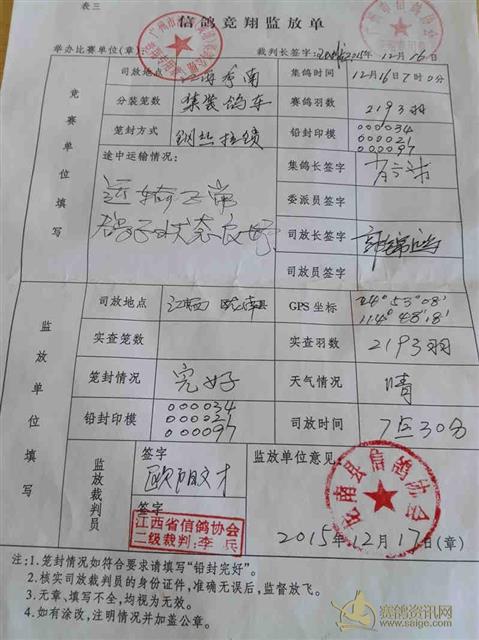 表三
信鸽竞翔监放单
举办比赛单位(章): 裁判长签字: 2015年12月16日
竞赛单位填写
司放地点 江西龙南 集鸽时间 12月16日7时0分
分装笼数 集装鸽车 赛鸽羽数 2193羽
笼封方式 钢丝拉锁 铅封印模 000034
000021
000097
途中运输情况: 集鸽长签字
运输正常 委派员签字
鸽子状态良好 司放长签字
司放员签字
监放单位填写
司放地点 江西 龙南县 GPS坐标 24°53′08′
114°48′18′
实查笼数 实查羽数 2193羽
笼封情况 完好 天气情况 晴
铅封印模 000034
000021
000097
司放时间 7时30分
监放裁判员 签字 监放单位意见:
欧阳文才
签字
江西省信鸽协会
二级裁判:李兵
龙南县信鸽协会
2015年12月17日(章)
注:1.笼封情况如符合要求请填写“铅封完好”。
2.核实司放裁判员的身份证件,准确无误后,监督放飞。
3.无章、填写不全,均视为无效。
4.如有涂改,注明情况并加盖公章。
赛鸽资讯网
www.saige.com